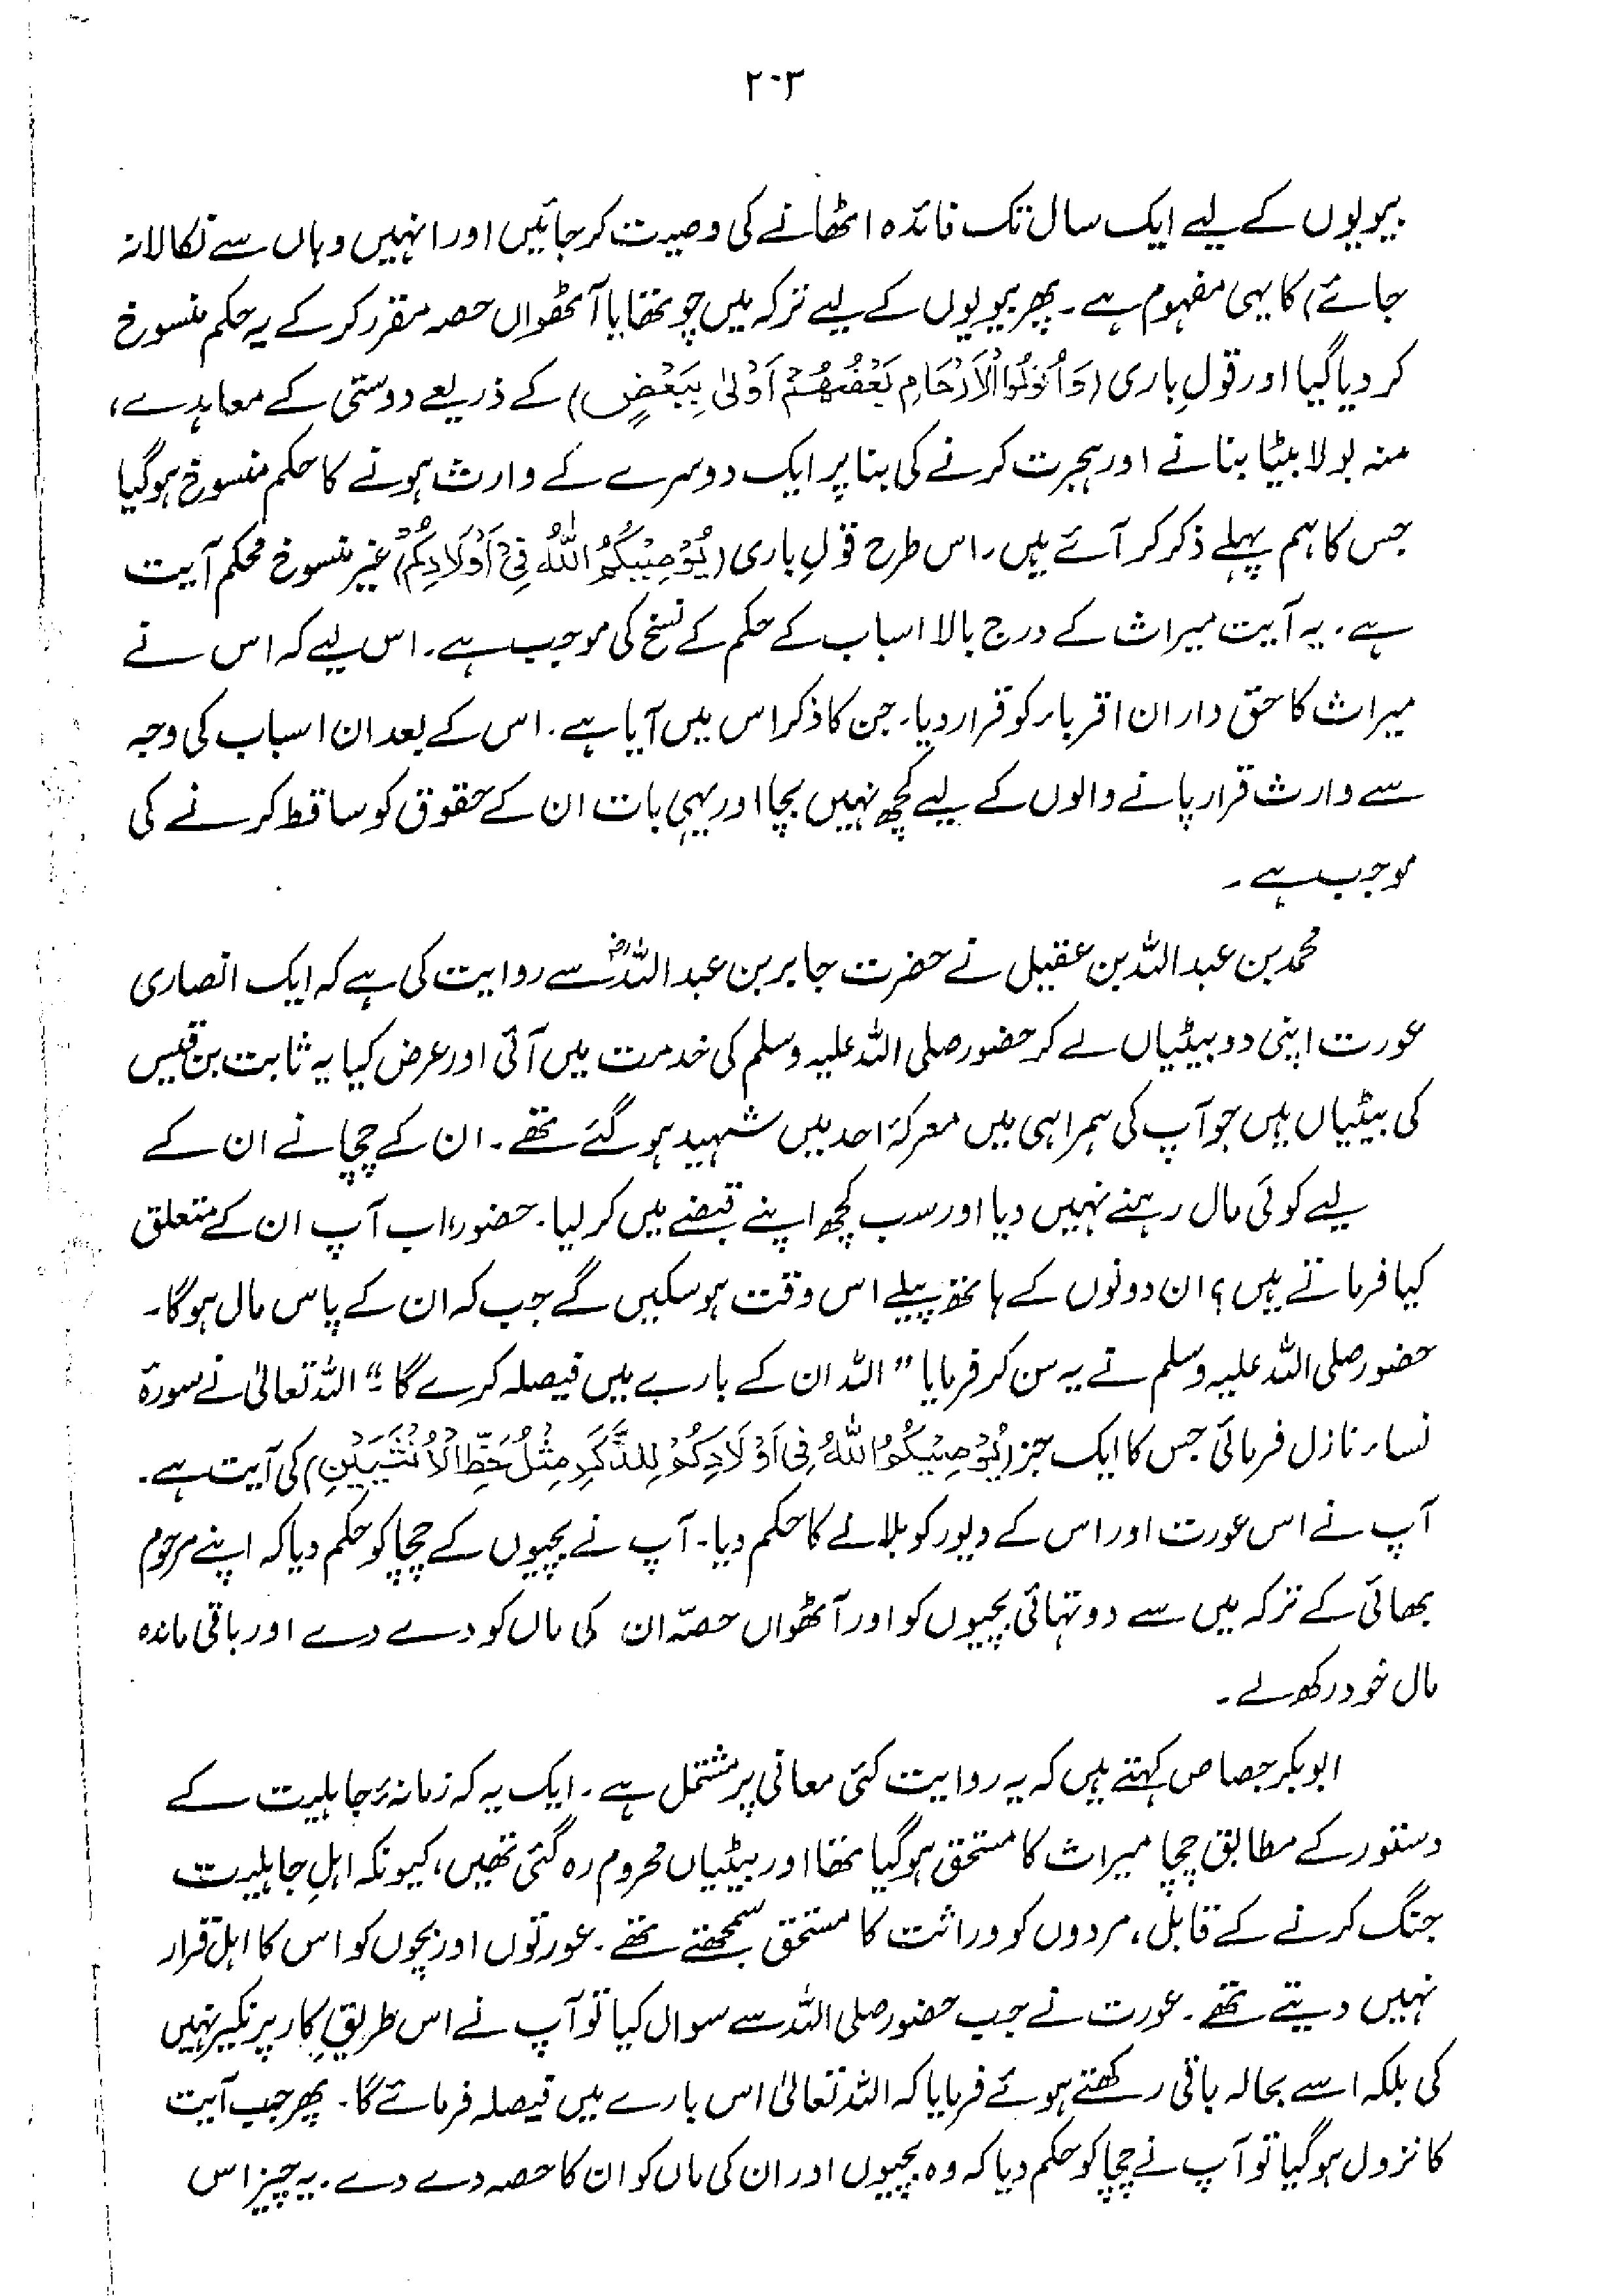 ۲۰۳
بیویوں کے لیے ایک سال تک فائدہ اٹھانے کی وصیت کر جائیں اور انہیں وہاں سے نکالا نہ
جائے) کا یہی مفہوم ہے۔ پھر بیویوں کے لیے ترکہ میں چوتھا یا آٹھواں حصہ مقرر کر کے یہ حکم منسوخ
کر دیا گیا اور قولِ باری (وَاُولُوا الْاَرْحَامِ بَعْضُهُمْ اَوْلٰی بِبَعْضٍ) کے ذریعے دوستی کے معاہدے،
منہ بولا بیٹا بنانے اور ہجرت کرنے کی بنا پر ایک دوسرے کے وارث ہونے کا حکم منسوخ ہو گیا
جس کا ہم پہلے ذکر کر آئے ہیں۔ اس طرح قولِ باری (یُوْصِیْکُمُ اللّٰهُ فِیْ اَوْلَادِکُمْ) غیر منسوخ محکم آیت
ہے۔ یہ آیت میراث کے درج بالا اسباب کے حکم کے نسخ کی موجب ہے۔ اس لیے کہ اس نے
میراث کا حق دار ان اقرباء کو قرار دیا۔ جن کا ذکر اس میں آیا ہے۔ اس کے بعد ان اسباب کی وجہ
سے وارث قرار پانے والوں کے لیے کچھ نہیں بچا اور یہی بات ان کے حقوق کو ساقط کرنے کی
موجب ہے۔
محمد بن عبداللہ بن عقیل نے حضرت جابر بن عبداللہؓ سے روایت کی ہے کہ ایک انصاری
عورت اپنی دو بیٹیاں لے کر حضور صلی اللہ علیہ وسلم کی خدمت میں آئی اور عرض کیا یہ ثابت بن قیس
کی بیٹیاں ہیں جو آپ کی ہمراہی میں معرکۂ احد میں شہید ہو گئے تھے۔ ان کے چچا نے ان کے
لیے کوئی مال رہنے نہیں دیا اور سب کچھ اپنے قبضے میں کر لیا۔ حضور، اب آپ ان کے متعلق
کیا فرماتے ہیں؟ ان دونوں کے ہاتھ پیلے اس وقت ہو سکیں گے جب کہ ان کے پاس مال ہو گا۔
حضور صلی اللہ علیہ وسلم نے یہ سن کر فرمایا "اللہ ان کے بارے میں فیصلہ کرے گا۔" اللہ تعالیٰ نے سورۃ
نساء نازل فرمائی جس کا ایک جز (یُوْصِیْکُمُ اللّٰهُ فِیْ اَوْلَادِکُمْ لِلذَّکَرِ مِثْلُ حَظِّ الْاُنْثَیَیْنِ) کی آیت ہے۔
آپ نے اس عورت اور اس کے دیور کو بلانے کا حکم دیا۔ آپ نے بچیوں کے چچا کو حکم دیا کہ اپنے مرحوم
بھائی کے ترکہ میں سے دو تہائی بچیوں کو اور آٹھواں حصّہ ان کی ماں کو دے دے اور باقی ماندہ
مال خود رکھ لے۔
ابوبکر جصاص کہتے ہیں کہ یہ روایت کئی معانی پر مشتمل ہے۔ ایک یہ کہ زمانۂ جاہلیت کے
دستور کے مطابق چچا میراث کا مستحق ہو گیا تھا اور بیٹیاں محروم رہ گئی تھیں، کیونکہ اہلِ جاہلیت
جنگ کرنے کے قابل، مردوں کو وراثت کا مستحق سمجھتے تھے۔ عورتوں اور بچوں کو اس کا اہل قرار
نہیں دیتے تھے۔ عورت نے جب حضور صلی اللہ سے سوال کیا تو آپ نے اس طریقِ کار پر نکیر نہیں
کی بلکہ اسے بحالہ باقی رکھتے ہوئے فرمایا کہ اللہ تعالیٰ اس بارے میں فیصلہ فرمائے گا۔ پھر جب آیت
کا نزول ہو گیا تو آپ نے چچا کو حکم دیا کہ وہ بچیوں اور ان کی ماں کو ان کا حصہ دے دے۔ یہ چیز اس